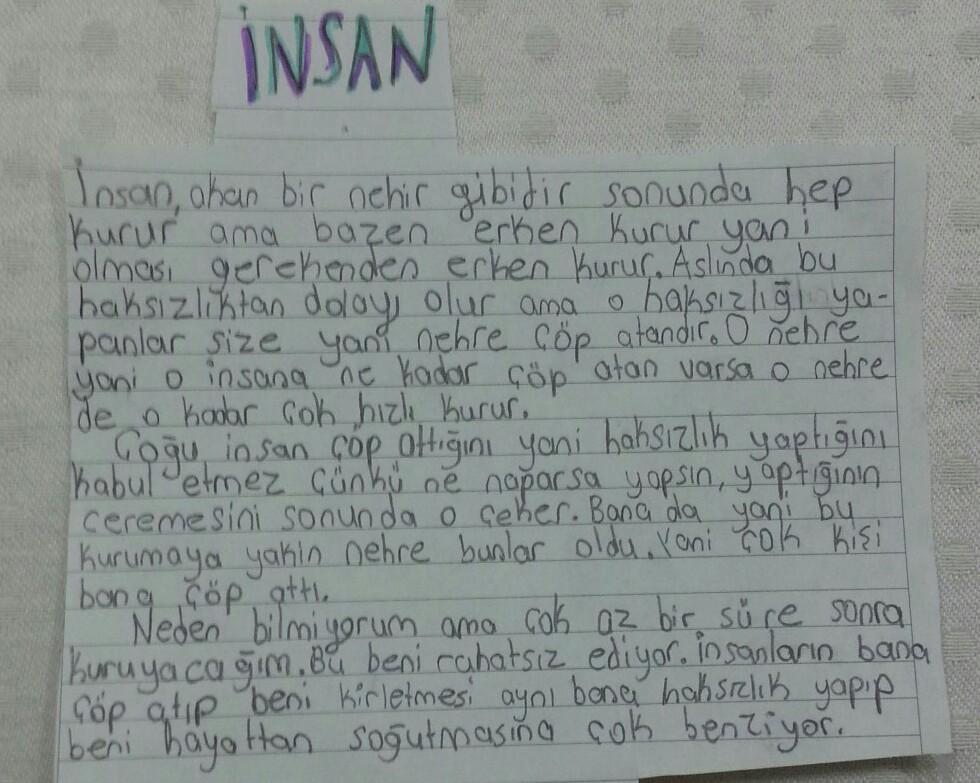 İNSAN
İnsan, akan bir nehir gibidir sonunda hep
kurur ama bazen erken kurur yani
olması gerekenden erken kurur. Aslında bu
haksızlıktan dolayı olur ama o haksızlığı ya-
panlar size yani nehre çöp atandır. O nehre
yani o insana ne kadar çöp atan varsa o nehre
de o kadar çok hızlı kurur.
Çoğu insan çöp attığını yani haksızlık yaptığını
kabul etmez çünkü ne naparsa yapsın, yaptığının
ceremesini sonunda o çeker. Bana da yani bu
kurumaya yakin nehre bunlar oldu. Yani çok kişi
bana çöp attı.
Neden bilmiyorum ama çok az bir süre sonra
kuruyacağım. Bu beni rahatsız ediyor. İnsanların bana
çöp atıp beni kirletmesi aynı bana haksızlık yapıp
beni hayattan soğutmasına çok benziyor.